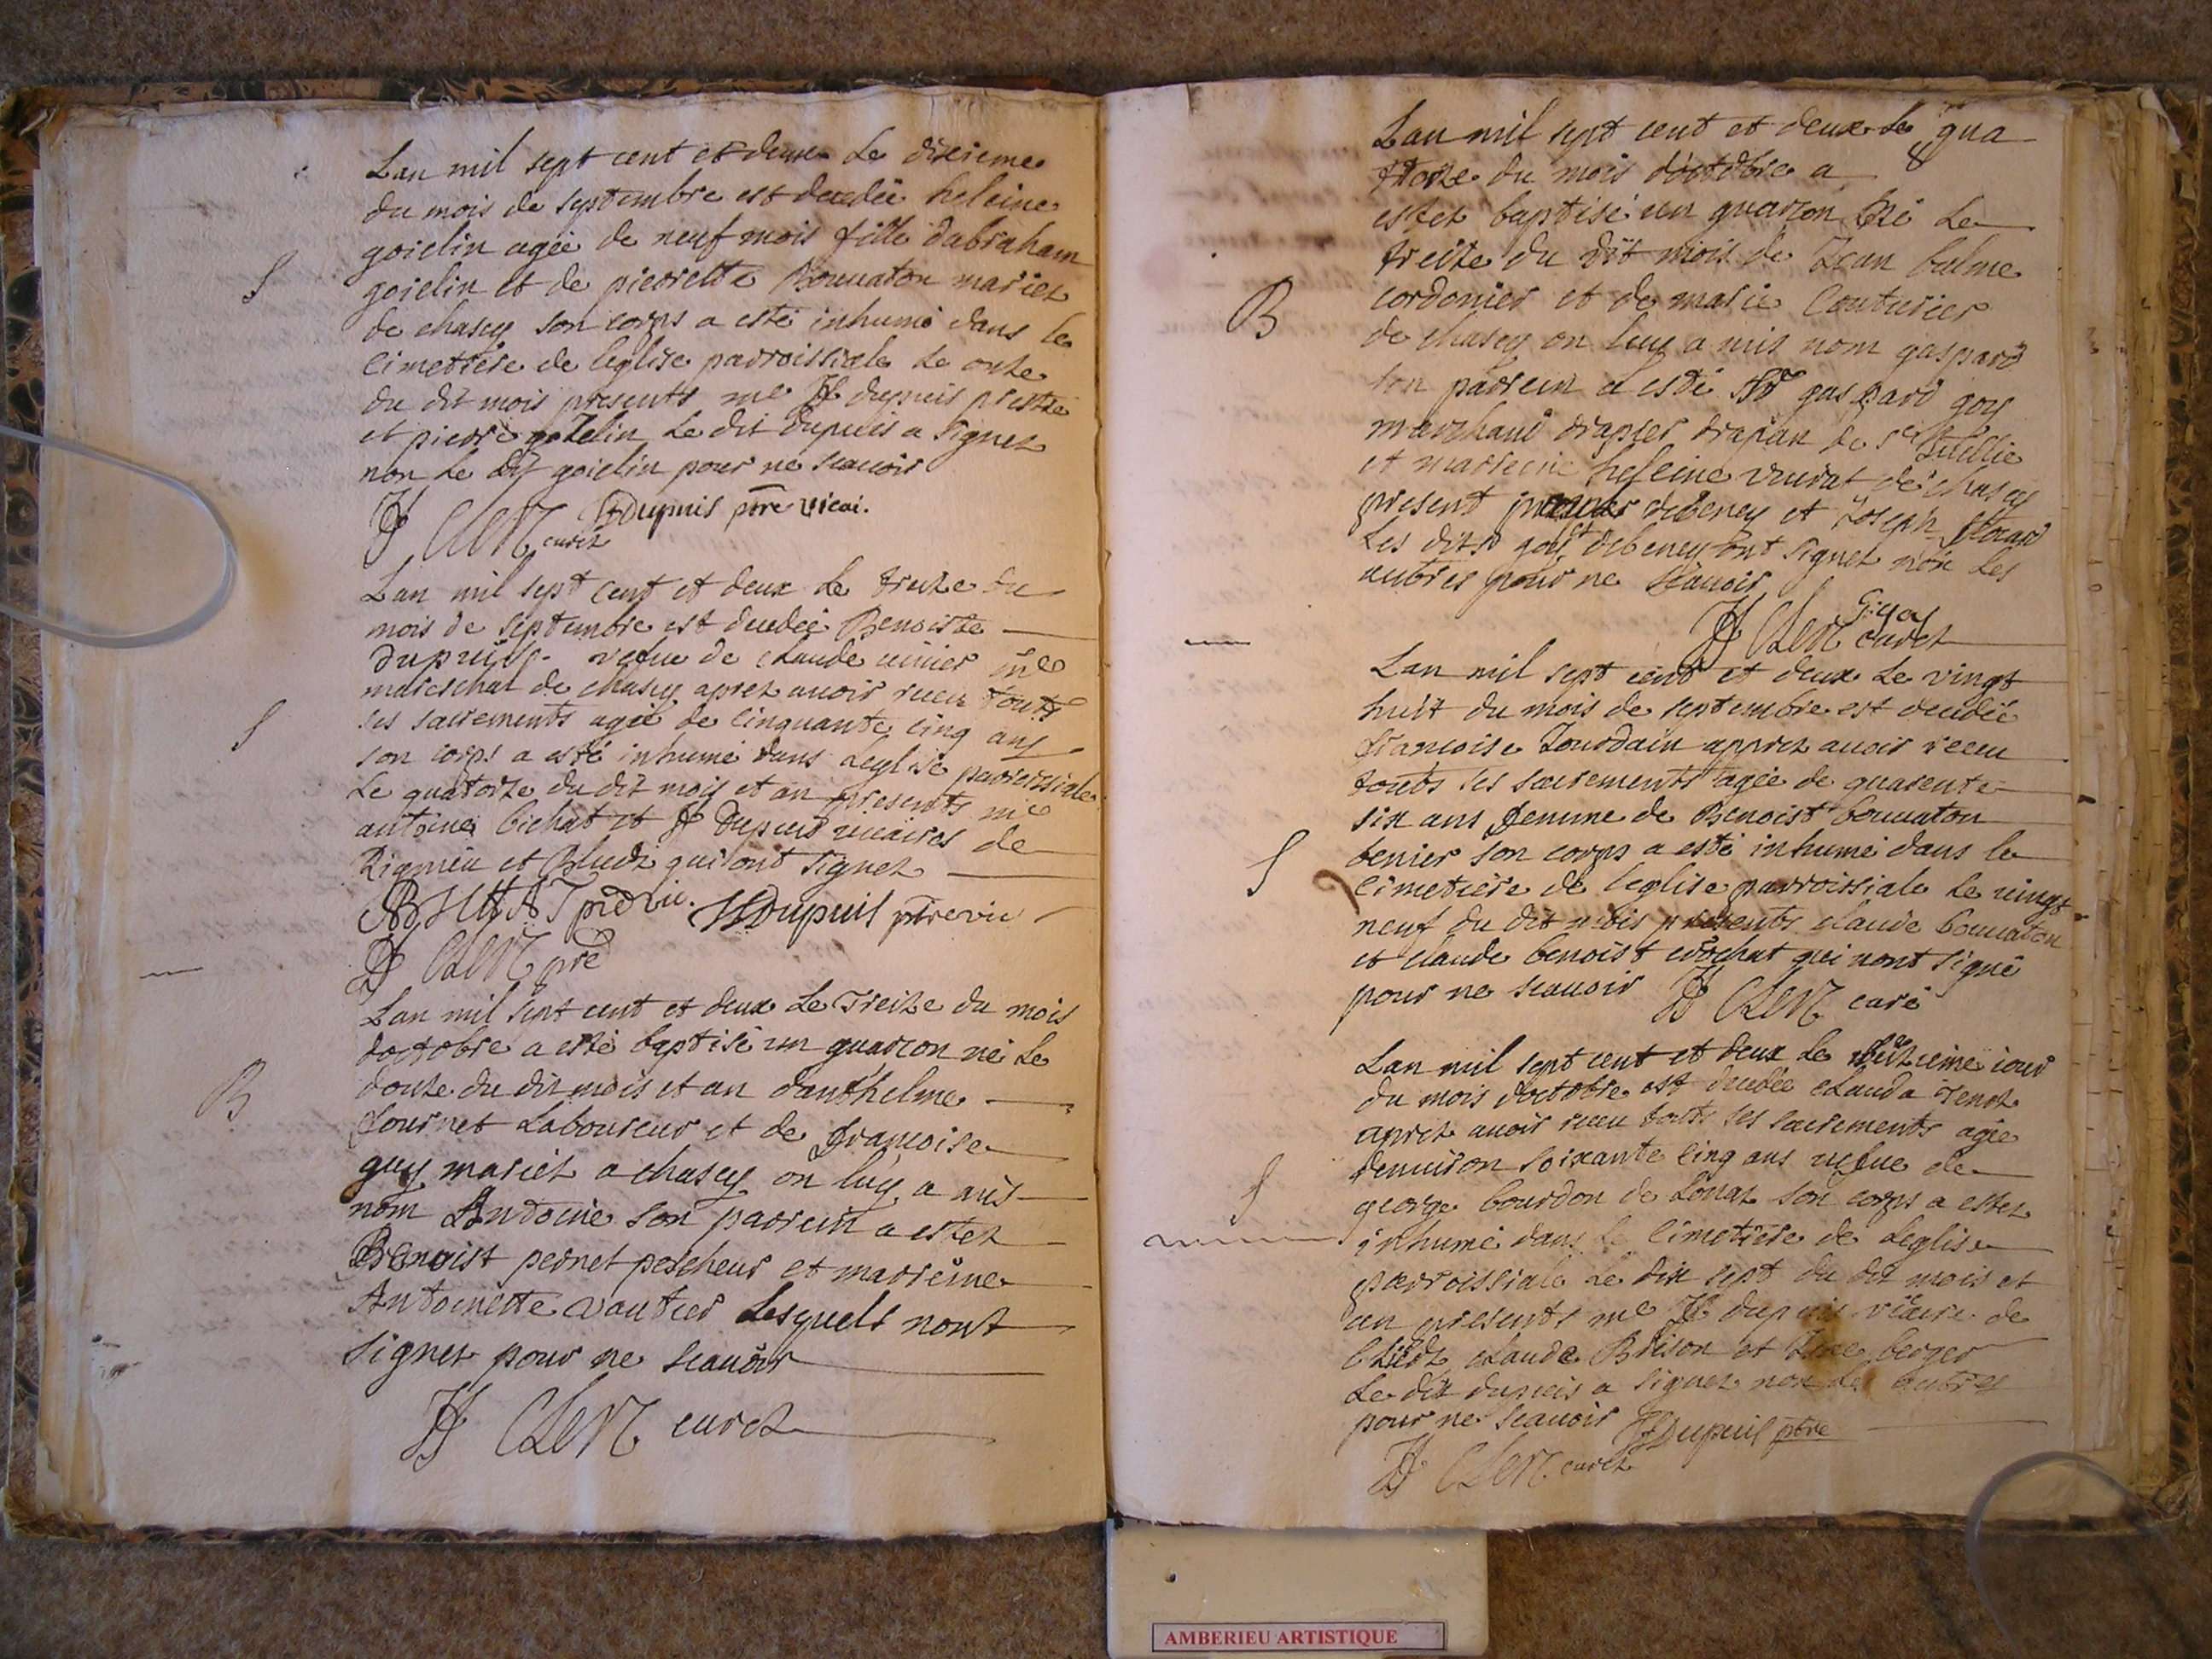 Lan mil sept cent et deux Le dixieme
du mois de septembre est decedée heleine
goiclin agée de neuf mois fille dabraham
goiclin et de pierrette Bouuaton mariez
S
de chasey son corps a esté inhumé dans le
cimetiere de leglise parroissiale Le onze
du dit mois presents me dupuis prestre
et pierre Le dit dupuis a signez
non Le dit goiclin pour ne scauoir
Dupuis ptre vicai.
CLerc curez
Lan mil sept cent et deux Le treize du
mois de septembre est decedée Benoiste
vefue de claude
mareschat de chasey aprez auoir receu touts
S
ses sacrements agée de cinquante cinq ans
son corps a esté inhumé dans Leglise parroissiale
Le quatorze du dit mois et an presents me
antoine bichat et dupuis vicaires de
Rignieu et Bliedz qui ont signez
BICHAT vic. Dupuis ptre vic
CLerc pre
Lan mil sept cent et deux Le Treize du mois
doctobre a esté baptisé un guarcon né Le
B
douze du dit mois et an danthelme
fournet Laboureur et de francoise
guy mariez a chasey on luy a mis
nom Antoine son parrein a estez
Benoist pernet pescheur et marreine
Antoinette vautier Lesquels nont
signez pour ne scauoir
CLerc curez
Lan mil sept cent et deux Le qua
torze du mois doctobre a
estez baptisé un guarcon né Le
treize du dit mois de Jean balme
B
cordonier et de marie Couturier
de chasey on luy a mis nom gaspard
son parrein a esté gaspard goy
marchand drapier drapan de st
et marreine heleine de chasey
present debeney et Joseph
Les dits goy et debeney ont signez non les
autres pour ne scauoir
Goy
CLerc curez
Lan mil sept cent et deux Le vingt
huit du mois de septembre est decedée
francoise Jourdain apprez auoir receu
touts ses sacrements agée de quarente
six ans femme de Benoist bouuaton
S
benier son corps a esté inhumé dans le
cimetiere de leglise parroissiale Le vingt
neuf du dit mois presents claude bouuaton
et claude benoist crochat qui nont signé
pour ne scauoir CLerc curé
Lan mil sept cent et deux Le iour
du mois doctobre est decedée clauda Tenoz
aprez auoir receu touts ses sacrements agée
denuiron soixante cinq ans vefue de
S
george bourdon de Loyat son corps a estez
inhumé dans le cimetiere de Leglise
parroissiale Le dix sept du dit mois et
an presents me dupuis vicaire de
bliedz claude Brison et berger
Le dit dupuis a signez non les autres
pour ne scauoir Dupuis ptre
CLerc curez
AMBERIEU ARTISTIQUE